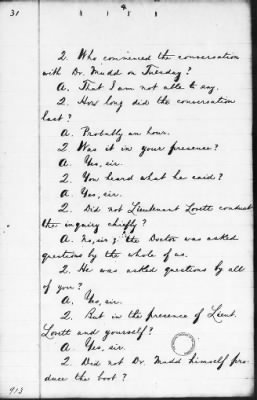 31
Q. Who commenced the conversation
with Dr. Mudd on Tuesday?
A. That I am not able to say.
Q. How long did the conversation
last?
A. Probably an hour.
Q. Was it in your presence?
A. Yes, sir.
Q. You heard what he said?
A. Yes, sir.
Q. Did not Lieutenant Lovett conduct
the inquiry chiefly?
A. No, sir; the Doctor was asked
questions by the whole of us.
Q. He was asked questions by all
of you?
A. Yes, sir.
Q. But in the presence of Lieut.
Lovett and yourself?
A. Yes, sir.
Q. Did not Dr. Mudd himself pro-
duce the boot?
913